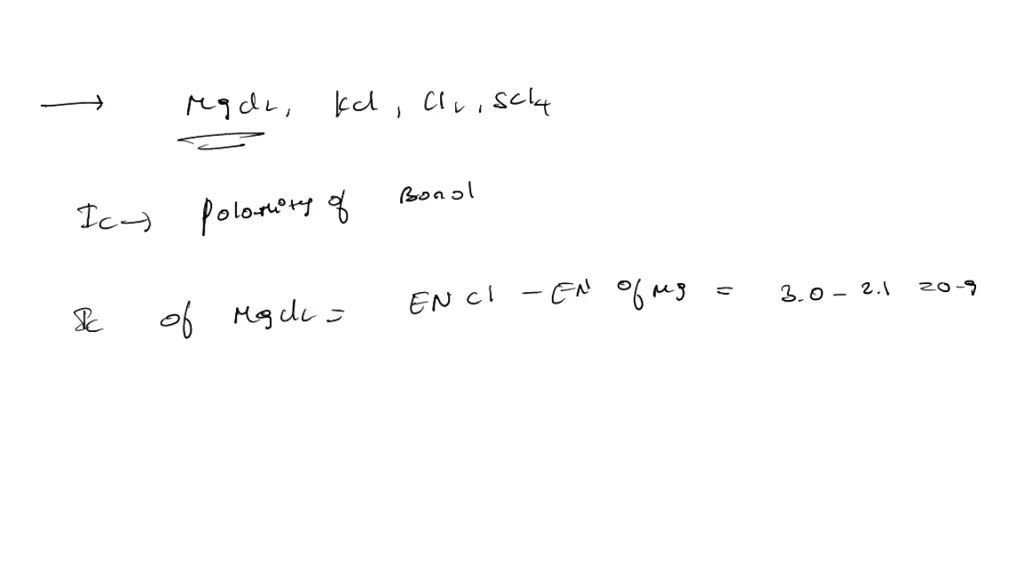 → MgCl₂, KCl, Cl₂, SCl₄
Ic → Polarity of Bond
Ic of MgCl₂ = EN Cl - EN of Mg = 3.0 - 2.1 = 0.9